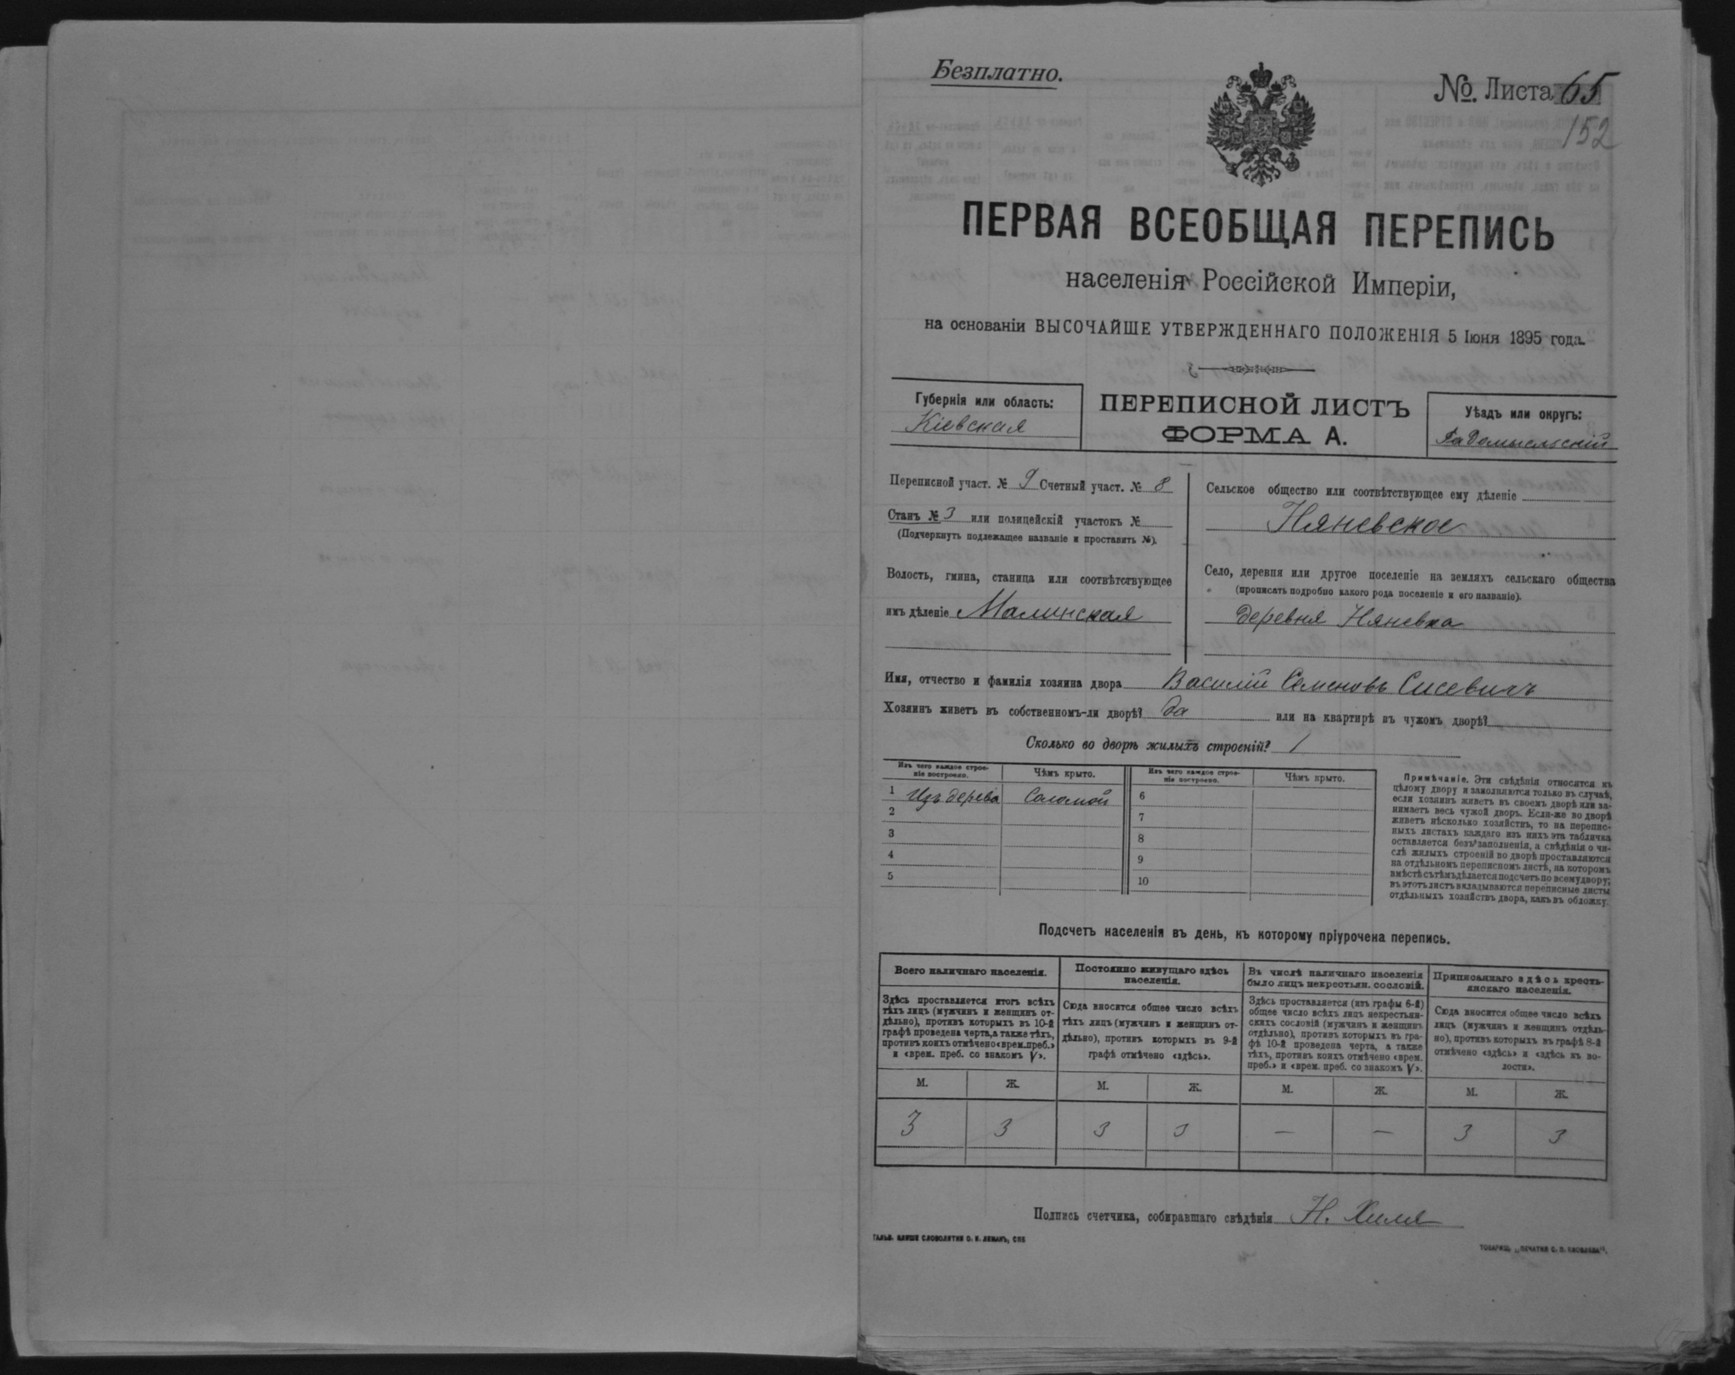 Безплатно.
№. Листа 65
152
ПЕРВАЯ ВСЕОБЩАЯ ПЕРЕПИСЬ
населенія Россійской Имперіи,
на основаніи ВЫСОЧАЙШЕ УТВЕРЖДЕННАГО ПОЛОЖЕНІЯ 5 Іюня 1895 года.
Губернія или область:
Кіевская
ПЕРЕПИСНОЙ ЛИСТЪ
ФОРМА А.
Уѣздъ или округъ:
Радомысльскій
Переписной участ. № 9 Счетный участ. № 8
Станъ № 3 или полицейскій участокъ №
(Подчеркнуть подлежащее названіе и проставить №).
Волость, гмина, станица или соотвѣтствующее
имъ дѣленіе Малинская
Сельское общество или соотвѣтствующее ему дѣленіе
Няневское
Село, деревня или другое поселеніе на земляхъ сельскаго общества
(прописать подробно какого рода поселеніе и его названіе).
деревня Няневка
Имя, отчество и фамилія хозяина двора Василій Семеновъ Сисевичъ
Хозяинъ живетъ въ собственномъ-ли дворѣ? да или на квартирѣ въ чужомъ дворѣ?
Сколько во дворѣ жилыхъ строеній? 1
Изъ чего каждое строе-
ніе построено.
Чѣмъ крыто.
Изъ чего каждое строе-
ніе построено.
Чѣмъ крыто.
1 Изъ дерева Соломой
2
3
4
5
6
7
8
9
10
Примѣчаніе. Эти свѣдѣнія относятся къ
цѣлому двору и заполняются только въ случаѣ,
если хозяинъ живетъ въ своемъ дворѣ или за-
нимаетъ весь чужой дворъ. Если-же во дворѣ
живетъ нѣсколько хозяйствъ, то на перепис-
ныхъ листахъ каждаго изъ нихъ эта табличка
оставляется безъ заполненія, а свѣдѣнія о чи-
слѣ жилыхъ строеній во дворѣ проставляются
на отдѣльномъ переписномъ листѣ, на которомъ
вмѣстѣ съ тѣмъ дѣлается подсчетъ по всему двору;
въ этотъ листъ вкладываются переписные листы
отдѣльныхъ хозяйствъ двора, какъ въ обложку.
Подсчетъ населенія въ день, къ которому пріурочена перепись.
Всего наличнаго населенія.
Здѣсь проставляется итогъ всѣхъ
тѣхъ лицъ (мужчинъ и женщинъ от-
дѣльно), противъ которыхъ въ 10-й
графѣ проведена черта, а также тѣхъ,
противъ коихъ отмѣчено «врем. преб.»
и «врем. преб. со знакомъ V».
Постоянно живущаго здѣсь
населенія.
Сюда вносится общее число всѣхъ
тѣхъ лицъ (мужчинъ и женщинъ от-
дѣльно), противъ которыхъ въ 9-й
графѣ отмѣчено «здѣсь».
Въ числѣ наличнаго населенія
было лицъ некрестьян. сословій.
Здѣсь проставляется (изъ графы 6-й)
общее число всѣхъ лицъ некрестьян-
скихъ сословій (мужчинъ и женщинъ
отдѣльно), противъ которыхъ въ гра-
фѣ 10-й проведена черта, а также
тѣхъ, противъ коихъ отмѣчено «врем.
преб.» и «врем. преб. со знакомъ V».
Приписаннаго здѣсь кресть-
янскаго населенія.
Сюда вносится общее число всѣхъ
лицъ (мужчинъ и женщинъ отдѣль-
но), противъ которыхъ въ графѣ 8-й
отмѣчено «здѣсь» и «здѣсь въ во-
лости».
М. Ж. М. Ж. М. Ж. М. Ж.
3 3 3 3 — — 3 3
Подпись счетчика, собиравшаго свѣдѣнія Н. Химя
ГАЛЬВ. КЛИШЕ СЛОВОЛИТНИ О. И. ЛЕМАНЪ, СПБ
ТОВАРИЩ. „ПЕЧАТНЯ С. П. ЯКОВЛЕВА“.